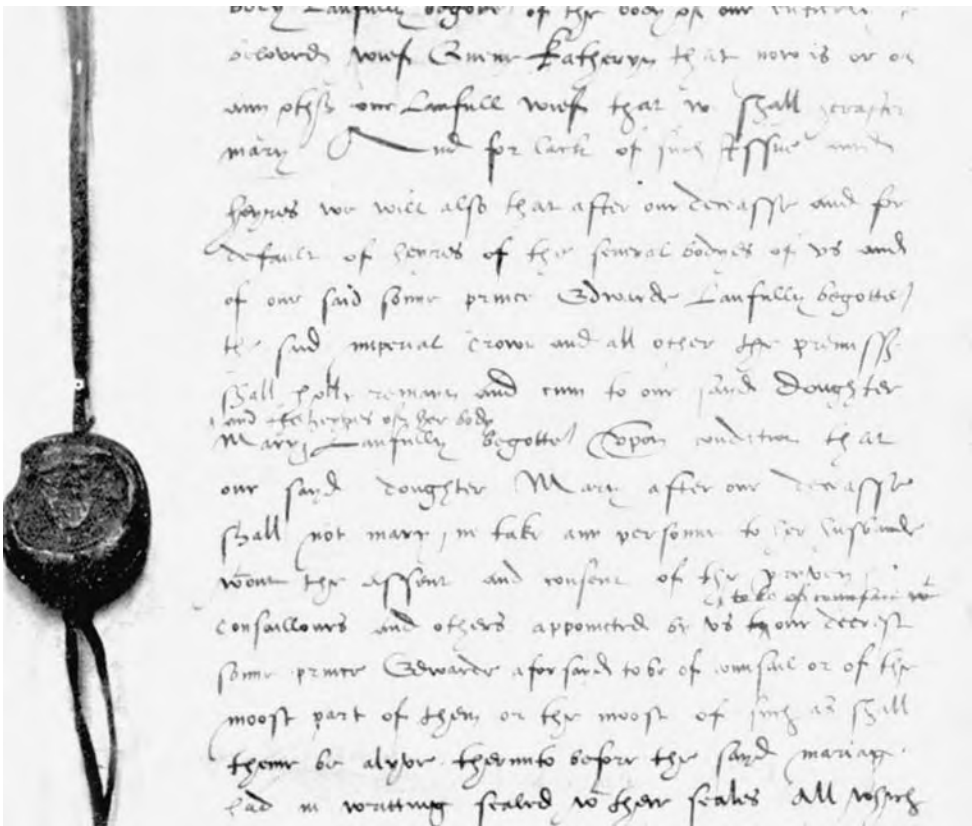 body Laufully begoten of the body of our entierly
beloved wief Quene Katheryn that now is or of
any other our Laufull wief that we shall herafter
mary And for lack of such Issue and
heyres we will also that after our deceasse and for
default of heyres of the several bodyes of vs and
of our said sonne prince Edwarde Laufully begotten
the said imperial Crown and all other the premisses
shall holly remayn and cum to our sayd doughter
and the heyres of her body
Mary Laufully begotten Vpon condition that
our sayd doughter Mary after our deceasse
shall not mary ne take any personne to her husbande
wtout the assent and consent of the prevey
to be of counsail wt
Consaillours and others appoincted by vs to our deerest
sonne prince Edwarde aforsayd to be of counsail or of the
moost part of them or the moost of such as shall
thenne be alyve therunto before the sayd mariage
had in writting sealed wt their seales All which